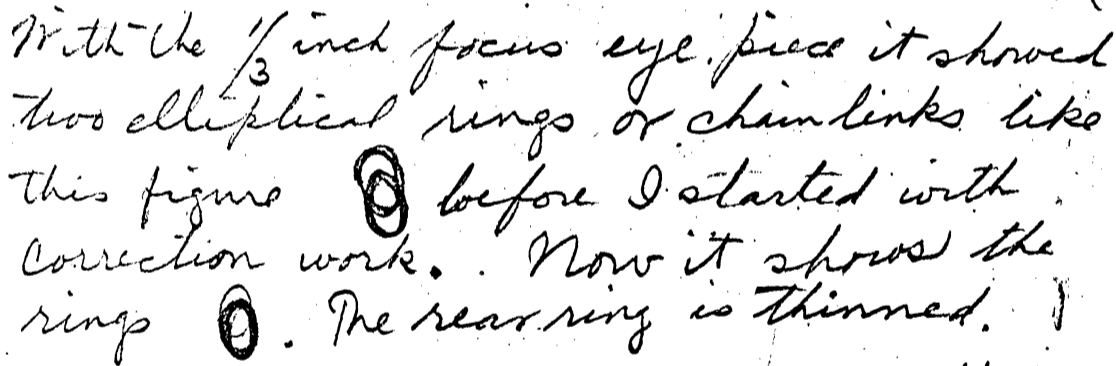 With the 1/3 inch focus eye piece it showed
two elliptical rings or chain links like
this figure before I started with
correction work. Now it shows the
rings . The rear ring is thinned.